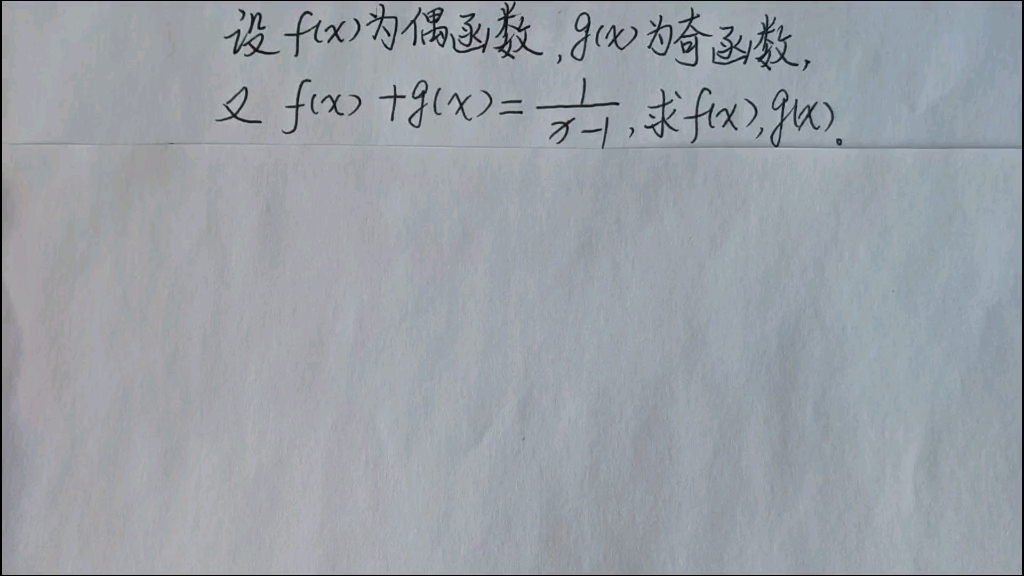 设 f(x)为偶函数,g(x)为奇函数,
又 f(x)+g(x)=\frac{1}{x-1},求f(x),g(x).